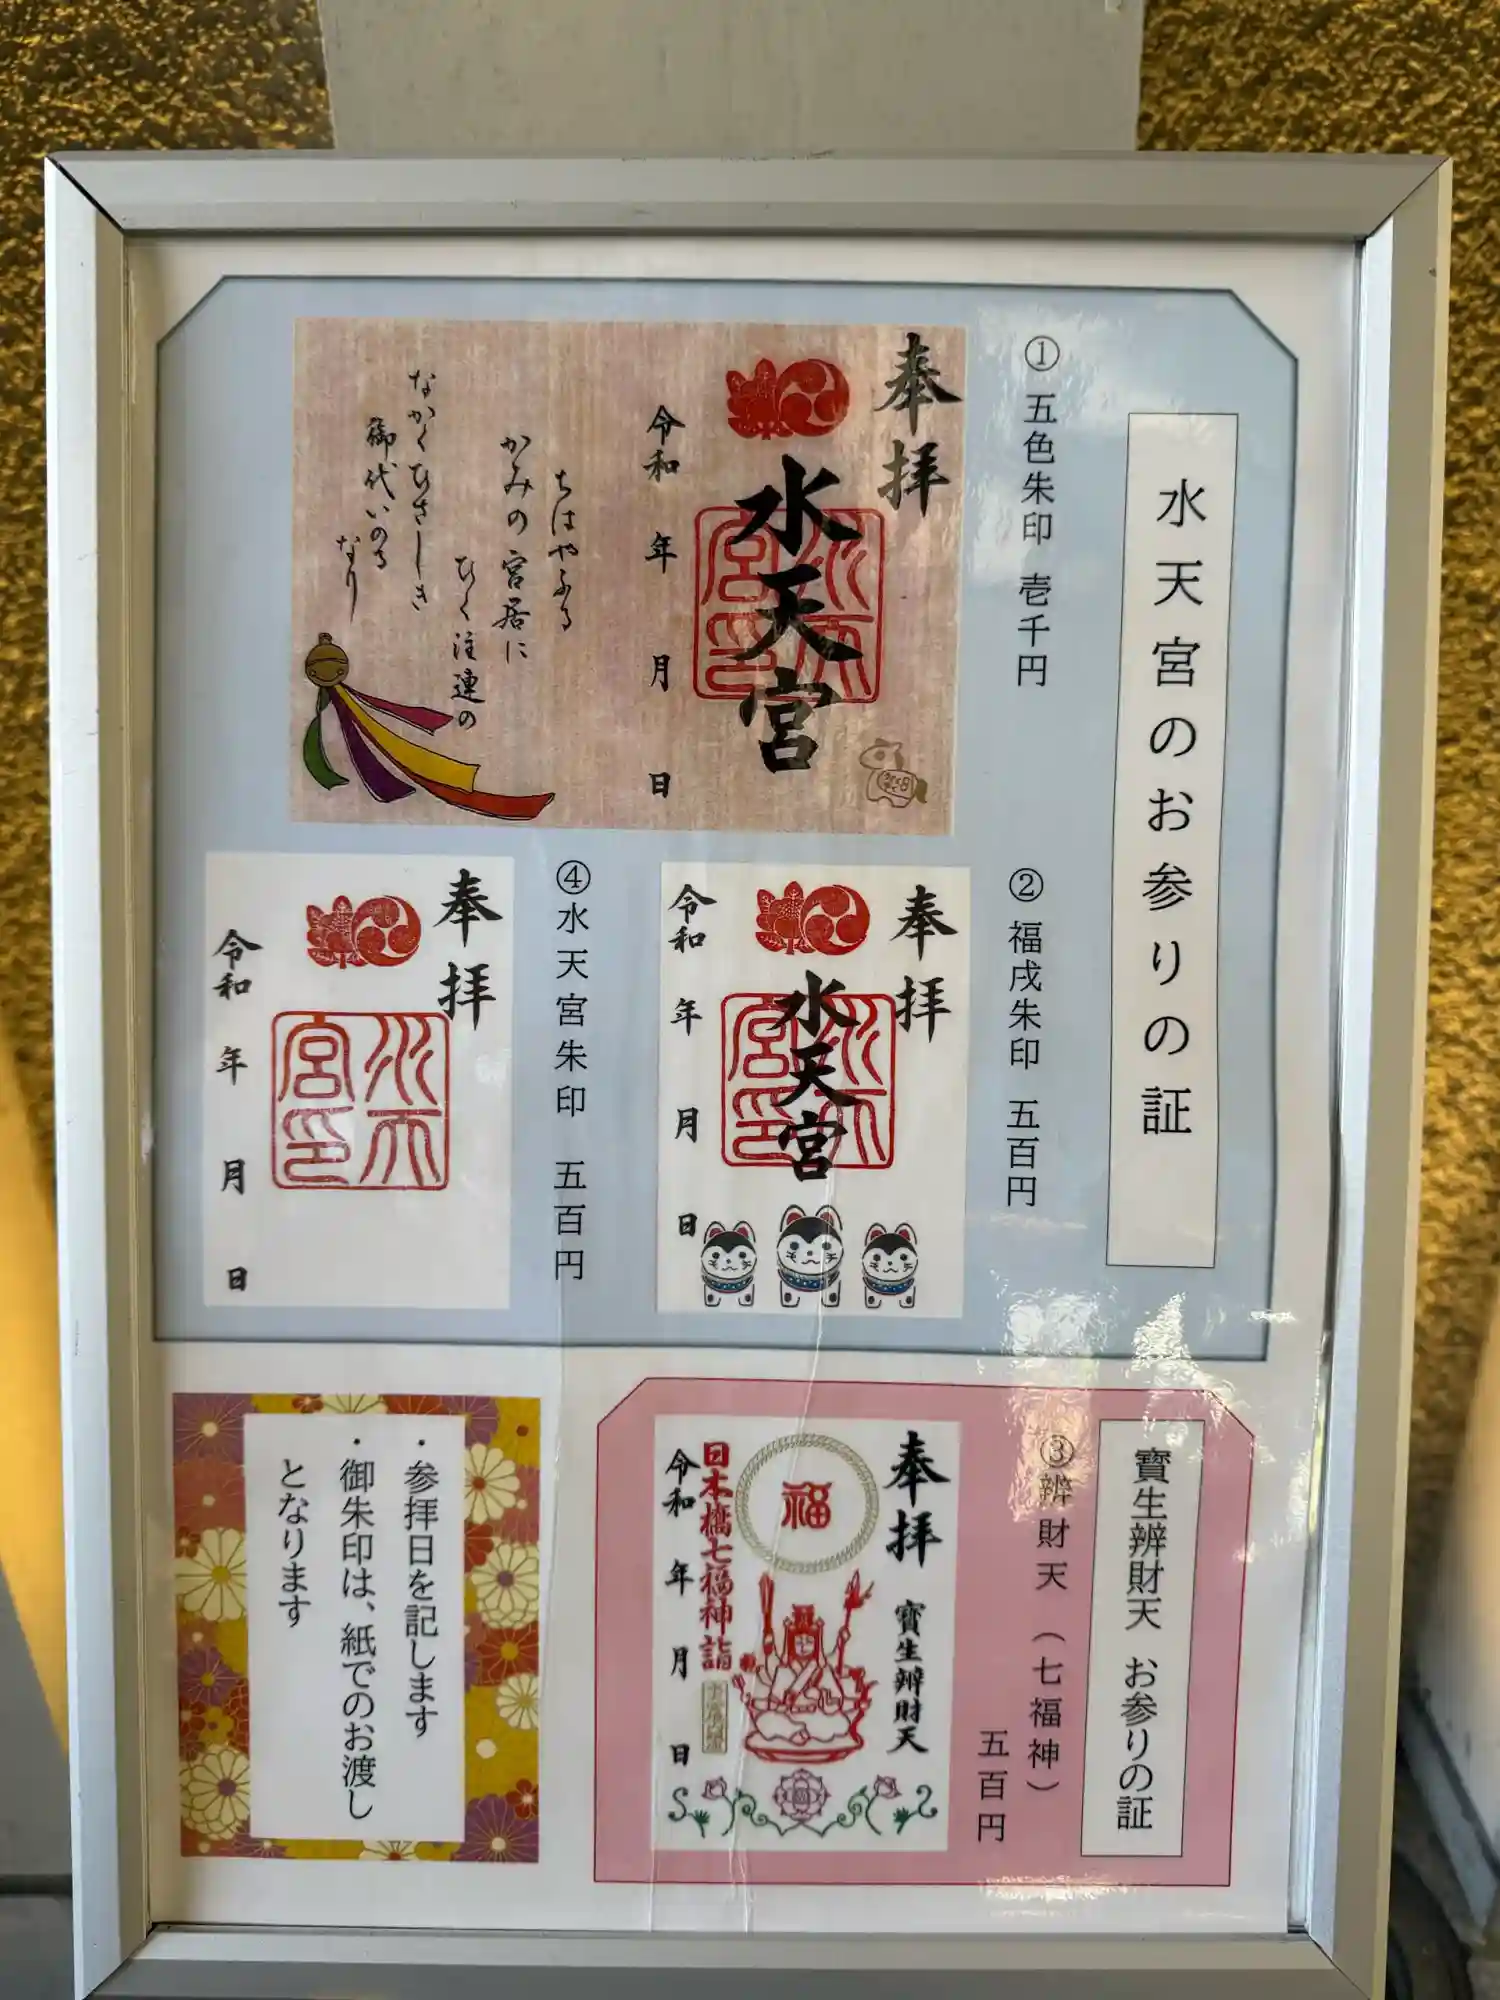 水天宮のお参りの証
① 五色朱印 壱千円
奉拝
水天宮
令和 年 月 日
ちはやふる
かみの宮居に
ひく注連の
なかくひさしき
御代いのる
なり
② 福戌朱印 五百円
奉拝
水天宮
令和 年 月 日
④水天宮朱印 五百円
奉拝
令和 年 月 日
寶生辨財天 お参りの証
③辨財天(七福神)
五百円
奉拝 寶生辨財天
福
日本橋七福神詣
令和 年 月 日
・参拝日を記します
・御朱印は、紙でのお渡し
となります